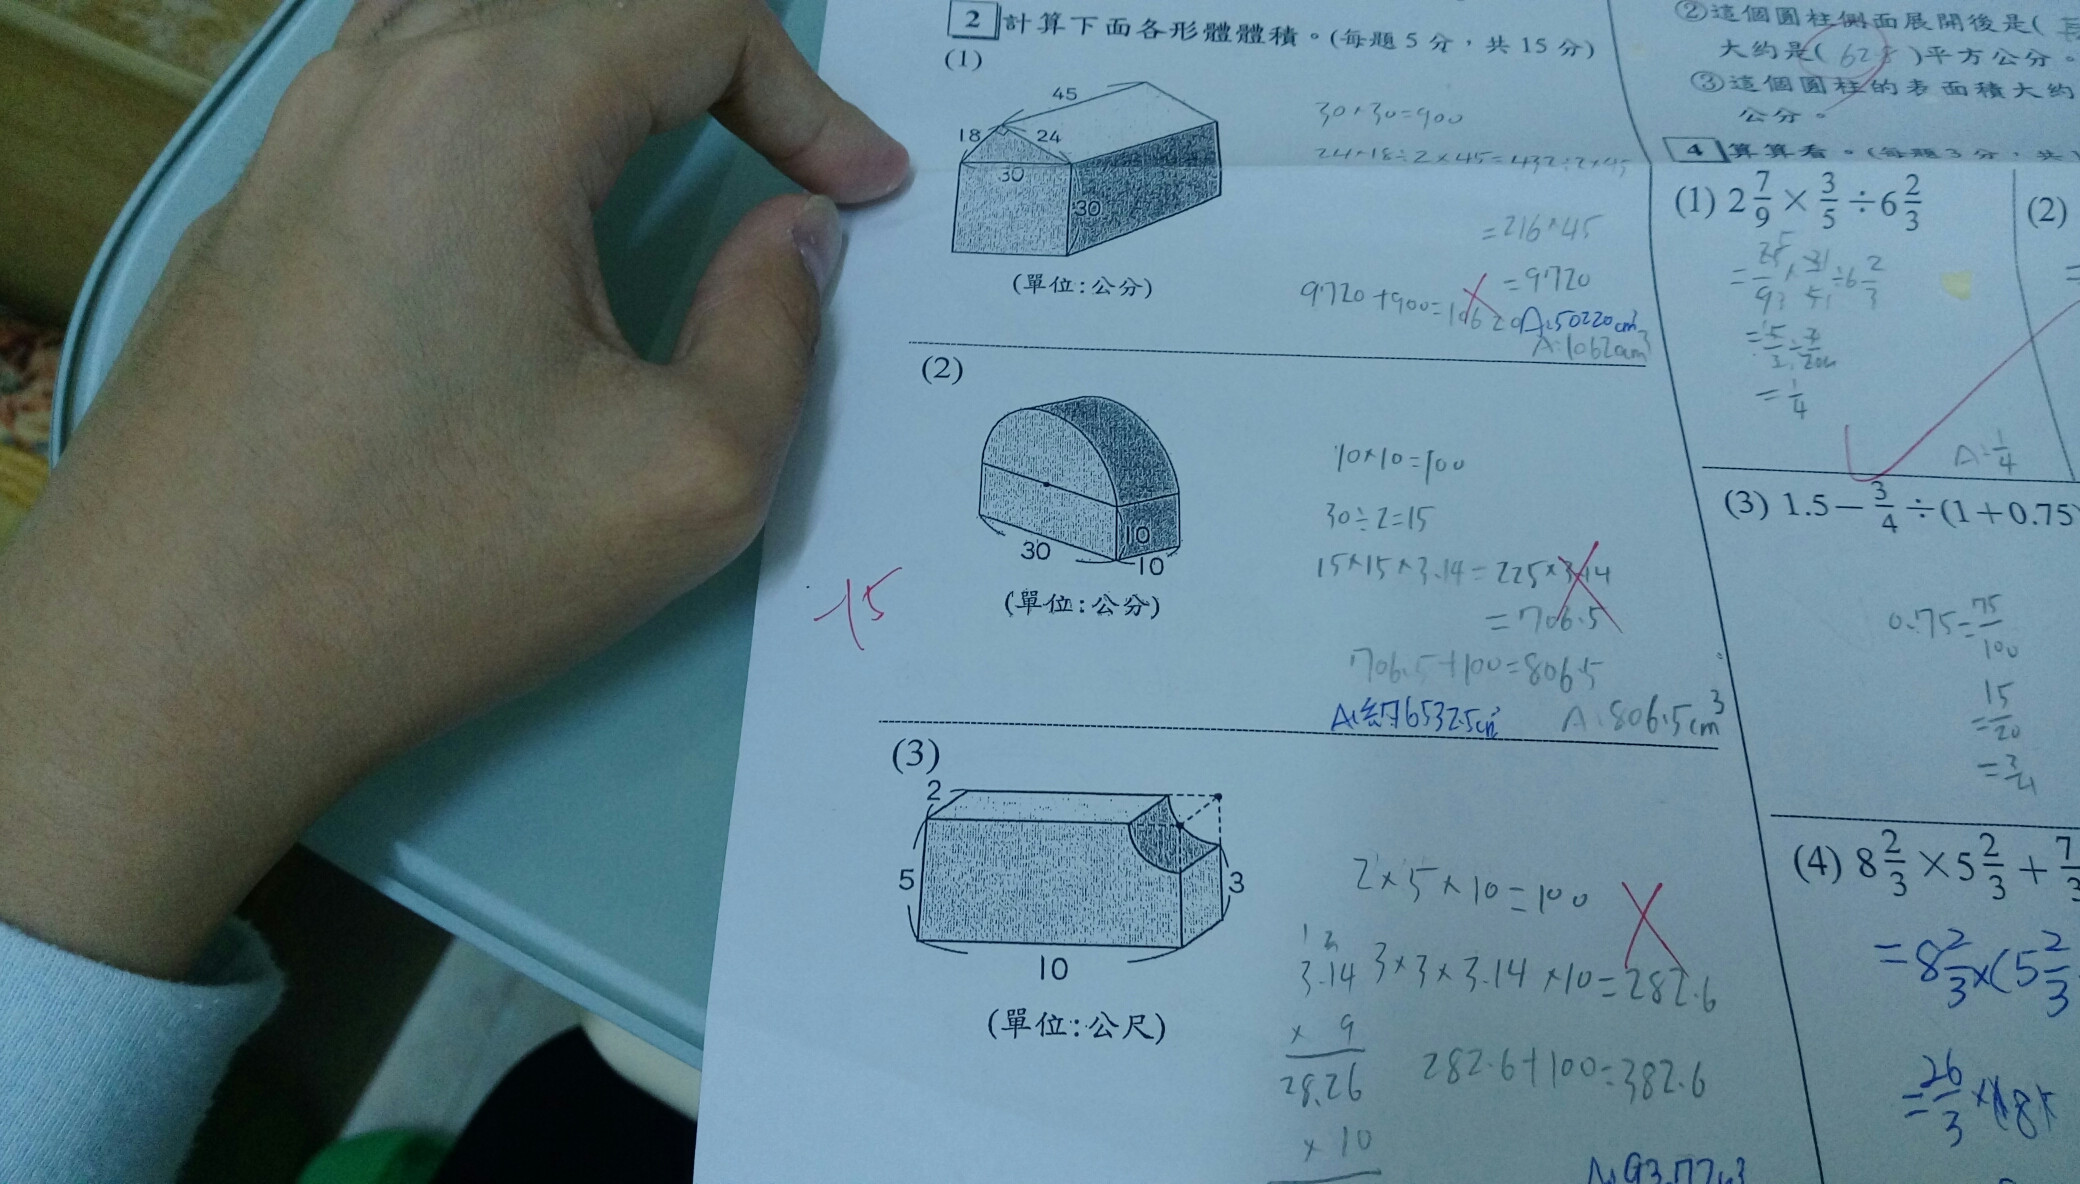 2 計算下面各形體體積。(每題5分，共15分)
(1)
45
18
24
30
30
(單位:公分)
30×30=900
24×18÷2×45=432÷2×45
=216×45
=9720
9720+900=10620
A:50220cm³
A:10620cm³
(2)
10
30
10
(單位:公分)
10×10=100
30÷2=15
15×15×3.14=225×3.14
=706.5
706.5+100=806.5
A:約6532.5cm³
A:806.5cm³
-15
(3)
2
5
3
10
(單位:公尺)
2×5×10=100
3.14
3×3×3.14×10=282.6
× 9
28.26
× 10
282.6+100=382.6
②這個圓柱側面展開後是(
大約是( 628 )平方公分。
③這個圓柱的表面積大約
公分。
4 算算看。(每題3分，共
(1) 2 7/9 × 3/5 ÷ 6 2/3
= 1/4
A: 1/4
(2)
(3) 1.5 − 3/4 ÷ (1+0.75)
0.75= 75/100
= 15/20
= 3/4
(4) 8 2/3 × 5 2/3 + 7/3
= 8 2/3 × (5 2/3